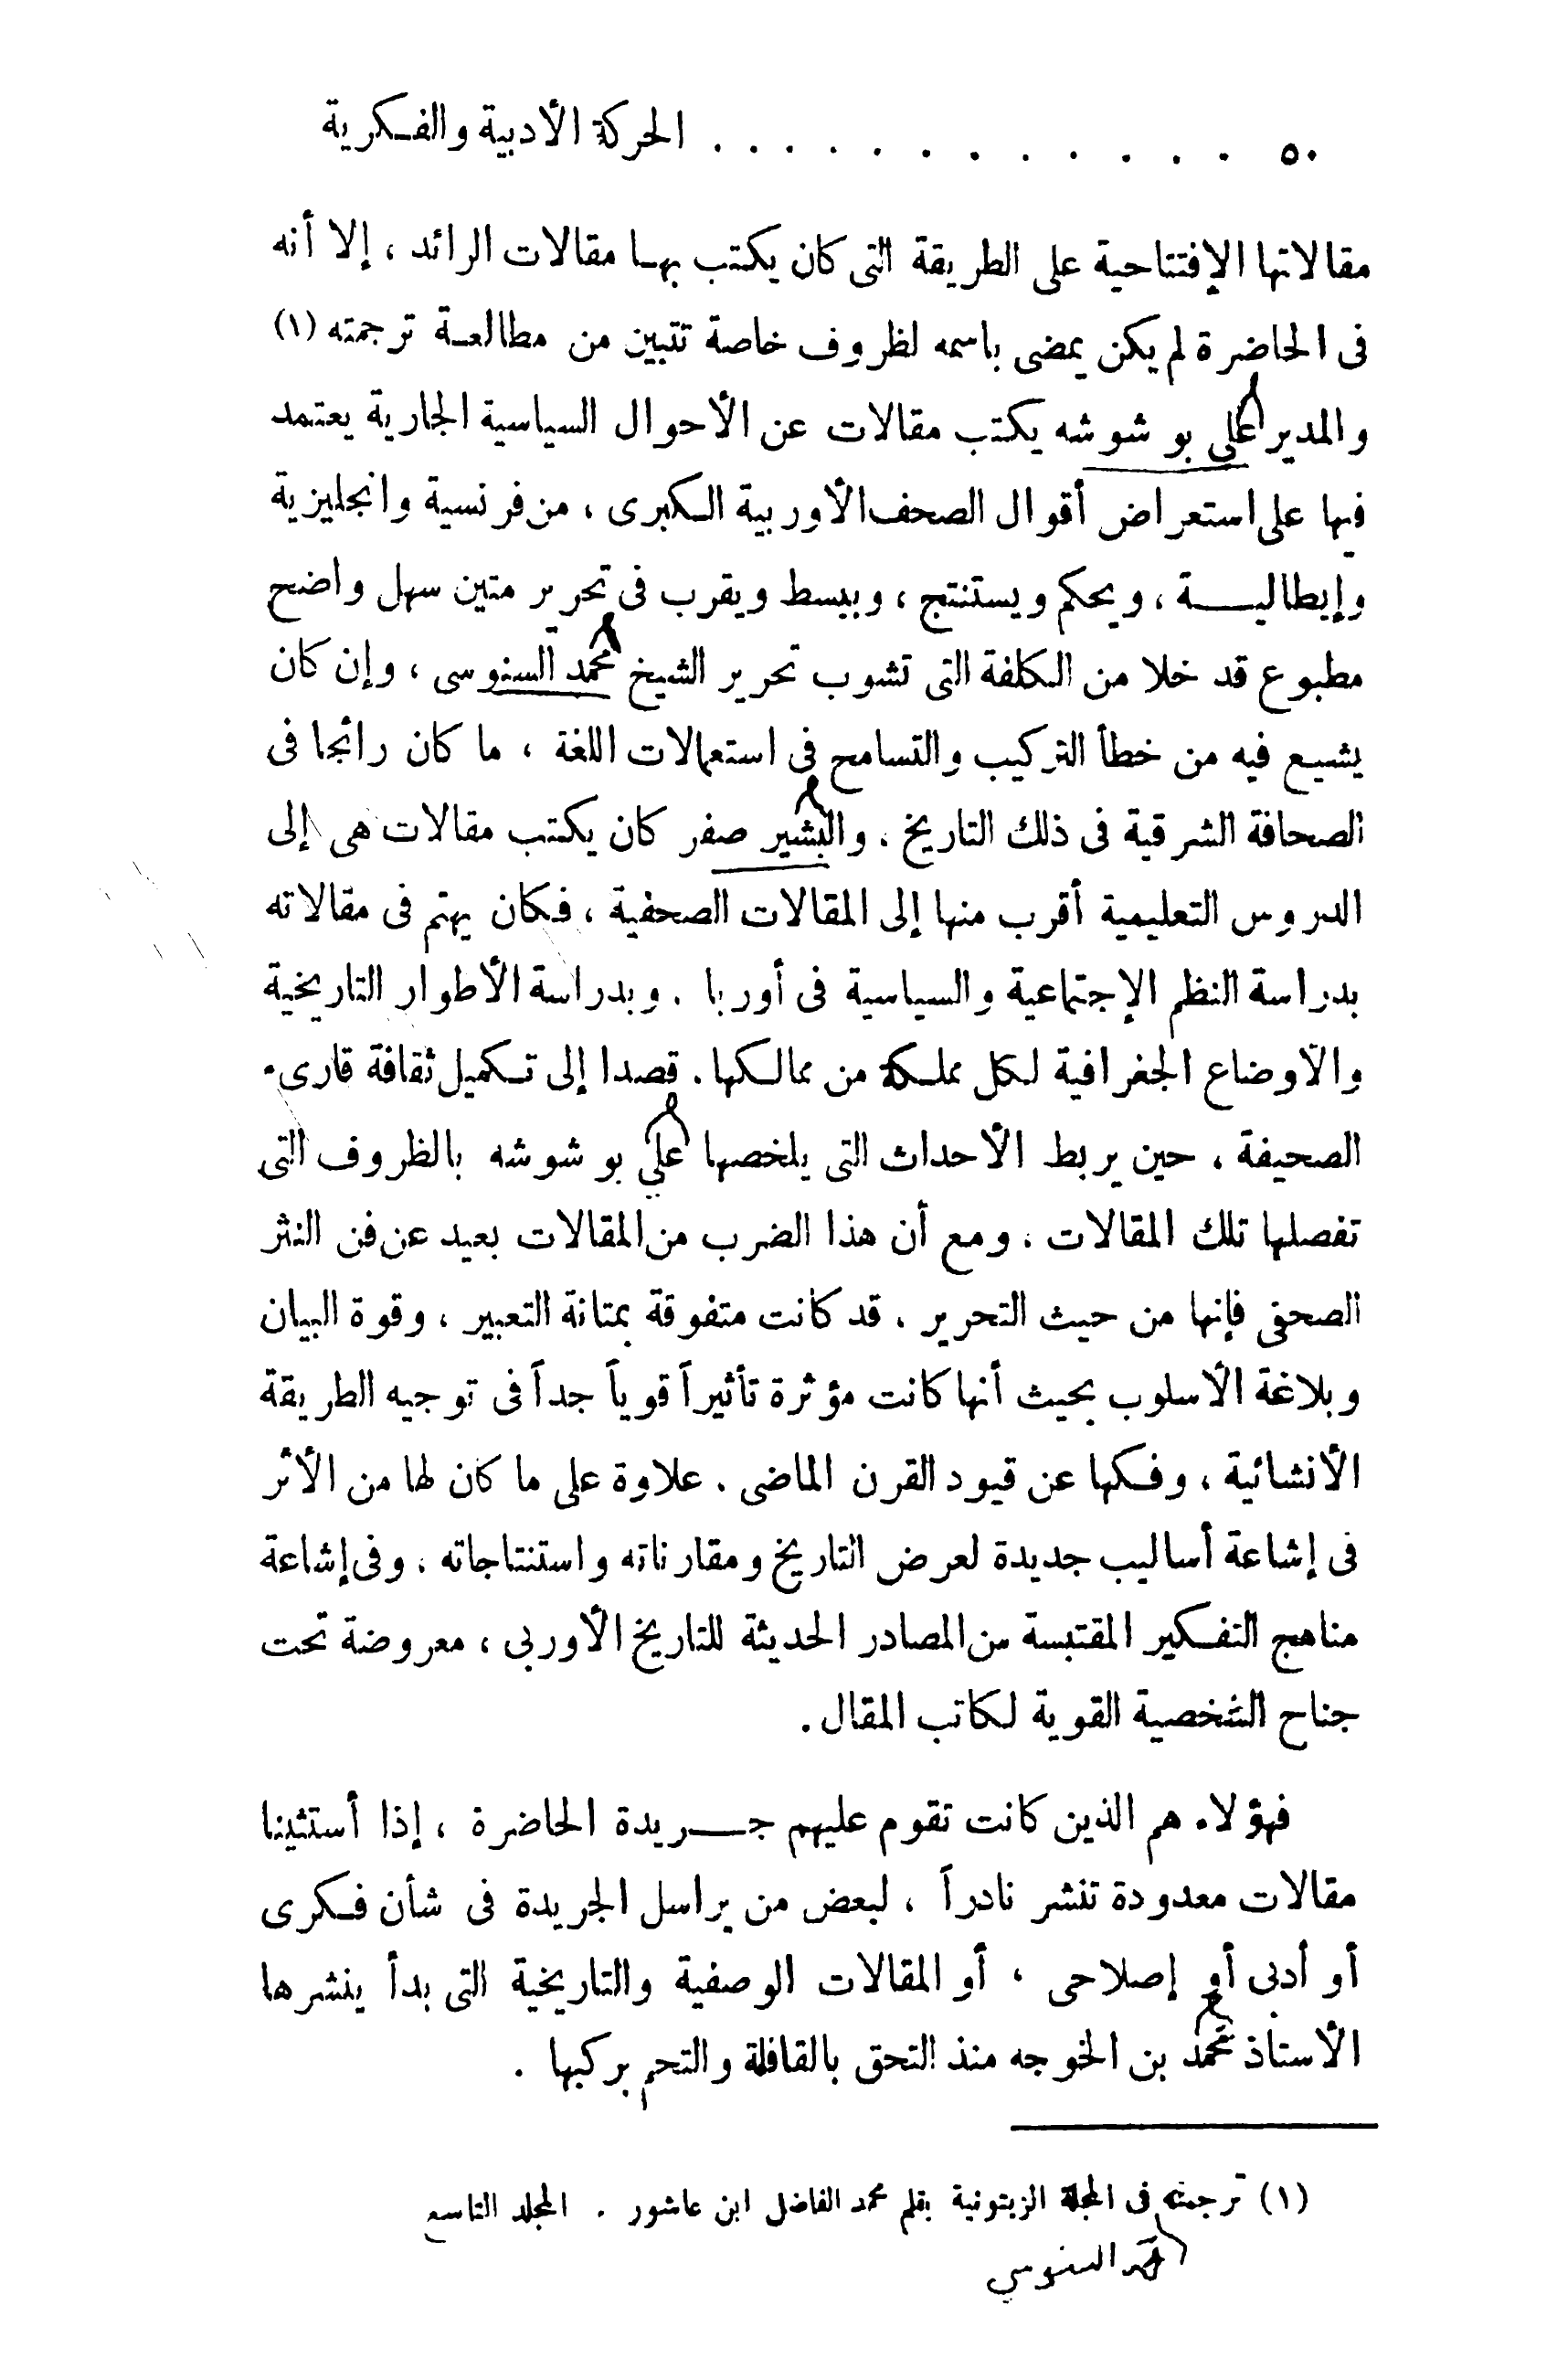 ٥٠ . . . . . . . . . . . . الحركة الأدبية والفكرية
مقالاتها الإفتتاحية على الطريقة التى كان يكتب بها مقالات الرائد ، إلا أنه
فى الحاضرة لم يكن يمضى باسمه لظروف خاصة تتبين من مطالعة ترجمته (١)
والمدير على بو شوشه يكتب مقالات عن الأحوال السياسية الجارية يعتمد
فيها على استعراض أقوال الصحف الأوربية الكبرى ، من فرنسية وانجليزية
وإيطالية ، ويحكم ويستنتج ، ويبسط ويقرب فى تحرير متين سهل واضح
مطبوع قد خلا من الكلفة التى تشوب تحرير الشيخ محمد السنوسى ، وإن كان
يشيع فيه من خطأ التركيب والتسامح فى استعمالات اللغة ، ما كان رائجا فى
الصحافة الشرقية فى ذلك التاريخ . والبشير صفر كان يكتب مقالات هى إلى
الدروس التعليمية أقرب منها إلى المقالات الصحفية ، فكان يهتم فى مقالاته
بدراسة النظم الإجتماعية والسياسية فى أوربا . وبدراسة الأطوار التاريخية
والأوضاع الجغرافية لكل مملكة من ممالكها . قصدا إلى تكميل ثقافة قارىء
الصحيفة ، حين يربط الأحداث التى يلخصها علي بو شوشه بالظروف التى
تفصلها تلك المقالات . ومع أن هذا الضرب من المقالات بعيد عن فن النثر
الصحفى فإنها من حيث التحرير ، قد كانت متفوقة بمتانة التعبير ، وقوة البيان
وبلاغة الأسلوب بحيث أنها كانت مؤثرة تأثيراً قوياً جداً فى توجيه الطريقة
الأنشائية ، وفكها عن قيود القرن الماضى . علاوة على ما كان لها من الأثر
فى إشاعة أساليب جديدة لعرض التاريخ ومقارناته واستنتاجاته ، وفى إشاعة
مناهج التفكير المقتبسة من المصادر الحديثة للتاريخ الأوربى ، معروضة تحت
جناح الشخصية القوية لكاتب المقال .
فهؤلاء هم الذين كانت تقوم عليهم جريدة الحاضرة ، إذا أستثينا
مقالات معدودة تنشر نادراً ، لبعض من يراسل الجريدة فى شأن فكرى
أو أدبى أو إصلاحى ، أو المقالات الوصفية والتاريخية التى بدأ ينشرها
الأستاذ محمد بن الخوجه منذ التحق بالقافلة والتحم بركبها .
(١) ترجمته فى المجلة الزيتونية بقلم محمد الفاضل ابن عاشور . المجلد التاسع
محمد السنوسي